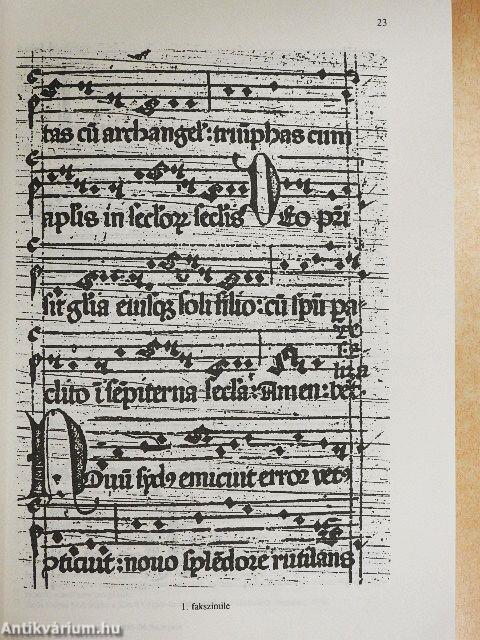 23
tas cū archangel': triūphas cum
aplis in seclorꝝ seclis Deo pr̄i
sit glia eiusqꝫ soli filio: cū spū pa-
clito ī sēpiterna secla: Amen: bet.
Nouū sydꝰ emicuit error vetꝰ
oticuit: nouo splēdore rutilans
1. fakszimile
Antikvárium.hu